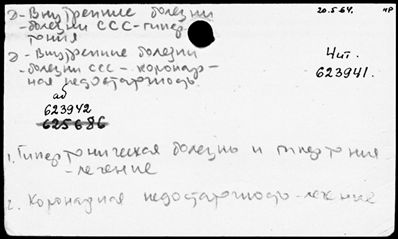 Э - Внутренние болезни
- болезни ССС - гипер-
тония
20.5.64. НР
Э - Внутренние болезни
- болезни ССС - коронар-
ная недостаточность
Чит.
623941.
аб
623942
625686
1. Гипертоническая болезнь и гипертония
- лечение
2. Коронарная недостаточность - лечение